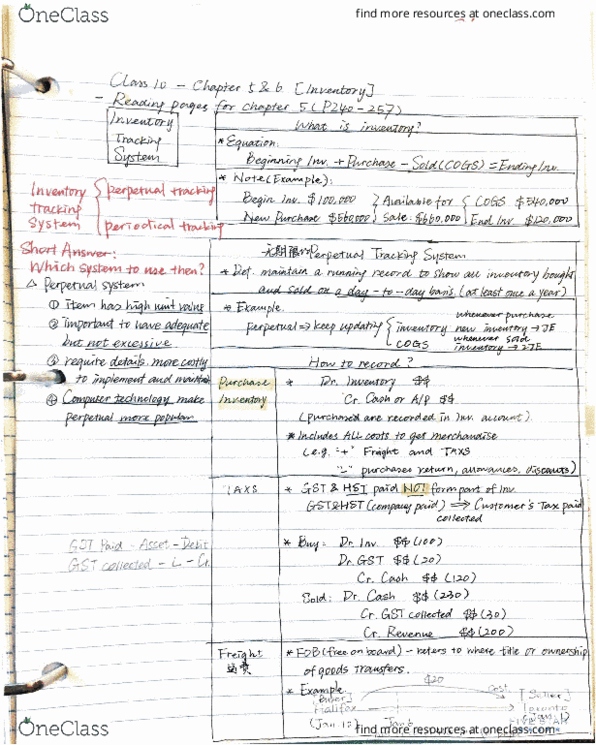 OneClass
find more resources at oneclass.com
Class 10 - Chapter 5 & 6 [Inventory]
- Reading pages for chapter 5 (P240-257)
Inventory
Tracking
System
What is inventory?
* Equation:
Beginning Inv. + Purchase - Sold (COGS) = Ending Inv.
* Note (Example):
Begin Inv. $100,000 } Available for { COGS $540,000
New Purchase $560000 } Sale: $660,000 { End Inv. $120,000
Inventory
tracking
system
perpetual tracking
periodical tracking
Short Answer:
Which system to use then?
△ Perpetual system
① Item has high unit value
② Important to have adequate
but not excessive
③ require details, more costly
to implement and maintain
④ Computer technology make
perpetual more popular
Perpetual Tracking System
* Def. maintain a running record to show all inventory bought
and sold on a day-to-day basis. (at least once a year)
* Example.
perpetual => keep updating { inventory
COGS
whenever purchase
new inventory → JE
whenever sold
inventory → 2JE
How to record?
Purchase
Inventory
* Dr. Inventory $$
Cr. Cash or A/P $$
(purchased are recorded in Inv. account)
* Includes ALL costs to get merchandise
(e.g. "+" Freight and TAXS
"-" purchases return, allowances, discounts)
TAXS
* GST & HST paid NOT form part of Inv.
GST&HST (company paid) => Customer's Tax paid
collected
GST Paid - Asset - Debit
GST collected - L - Cr.
* Buy: Dr. Inv. $$ (100)
Dr. GST $$ (20)
Cr. Cash $$ (120)
Sold: Dr. Cash $$ (230)
Cr. GST collected $$ (30)
Cr. Revenue $$ (200)
Freight
运费
* FOB (free on board) - refers to where title or ownership
of goods transfers.
* Example
$20
[Buyer] cost [Seller]
Halifax Toronto
(Jan 12)
OneClass
find more resources at oneclass.com